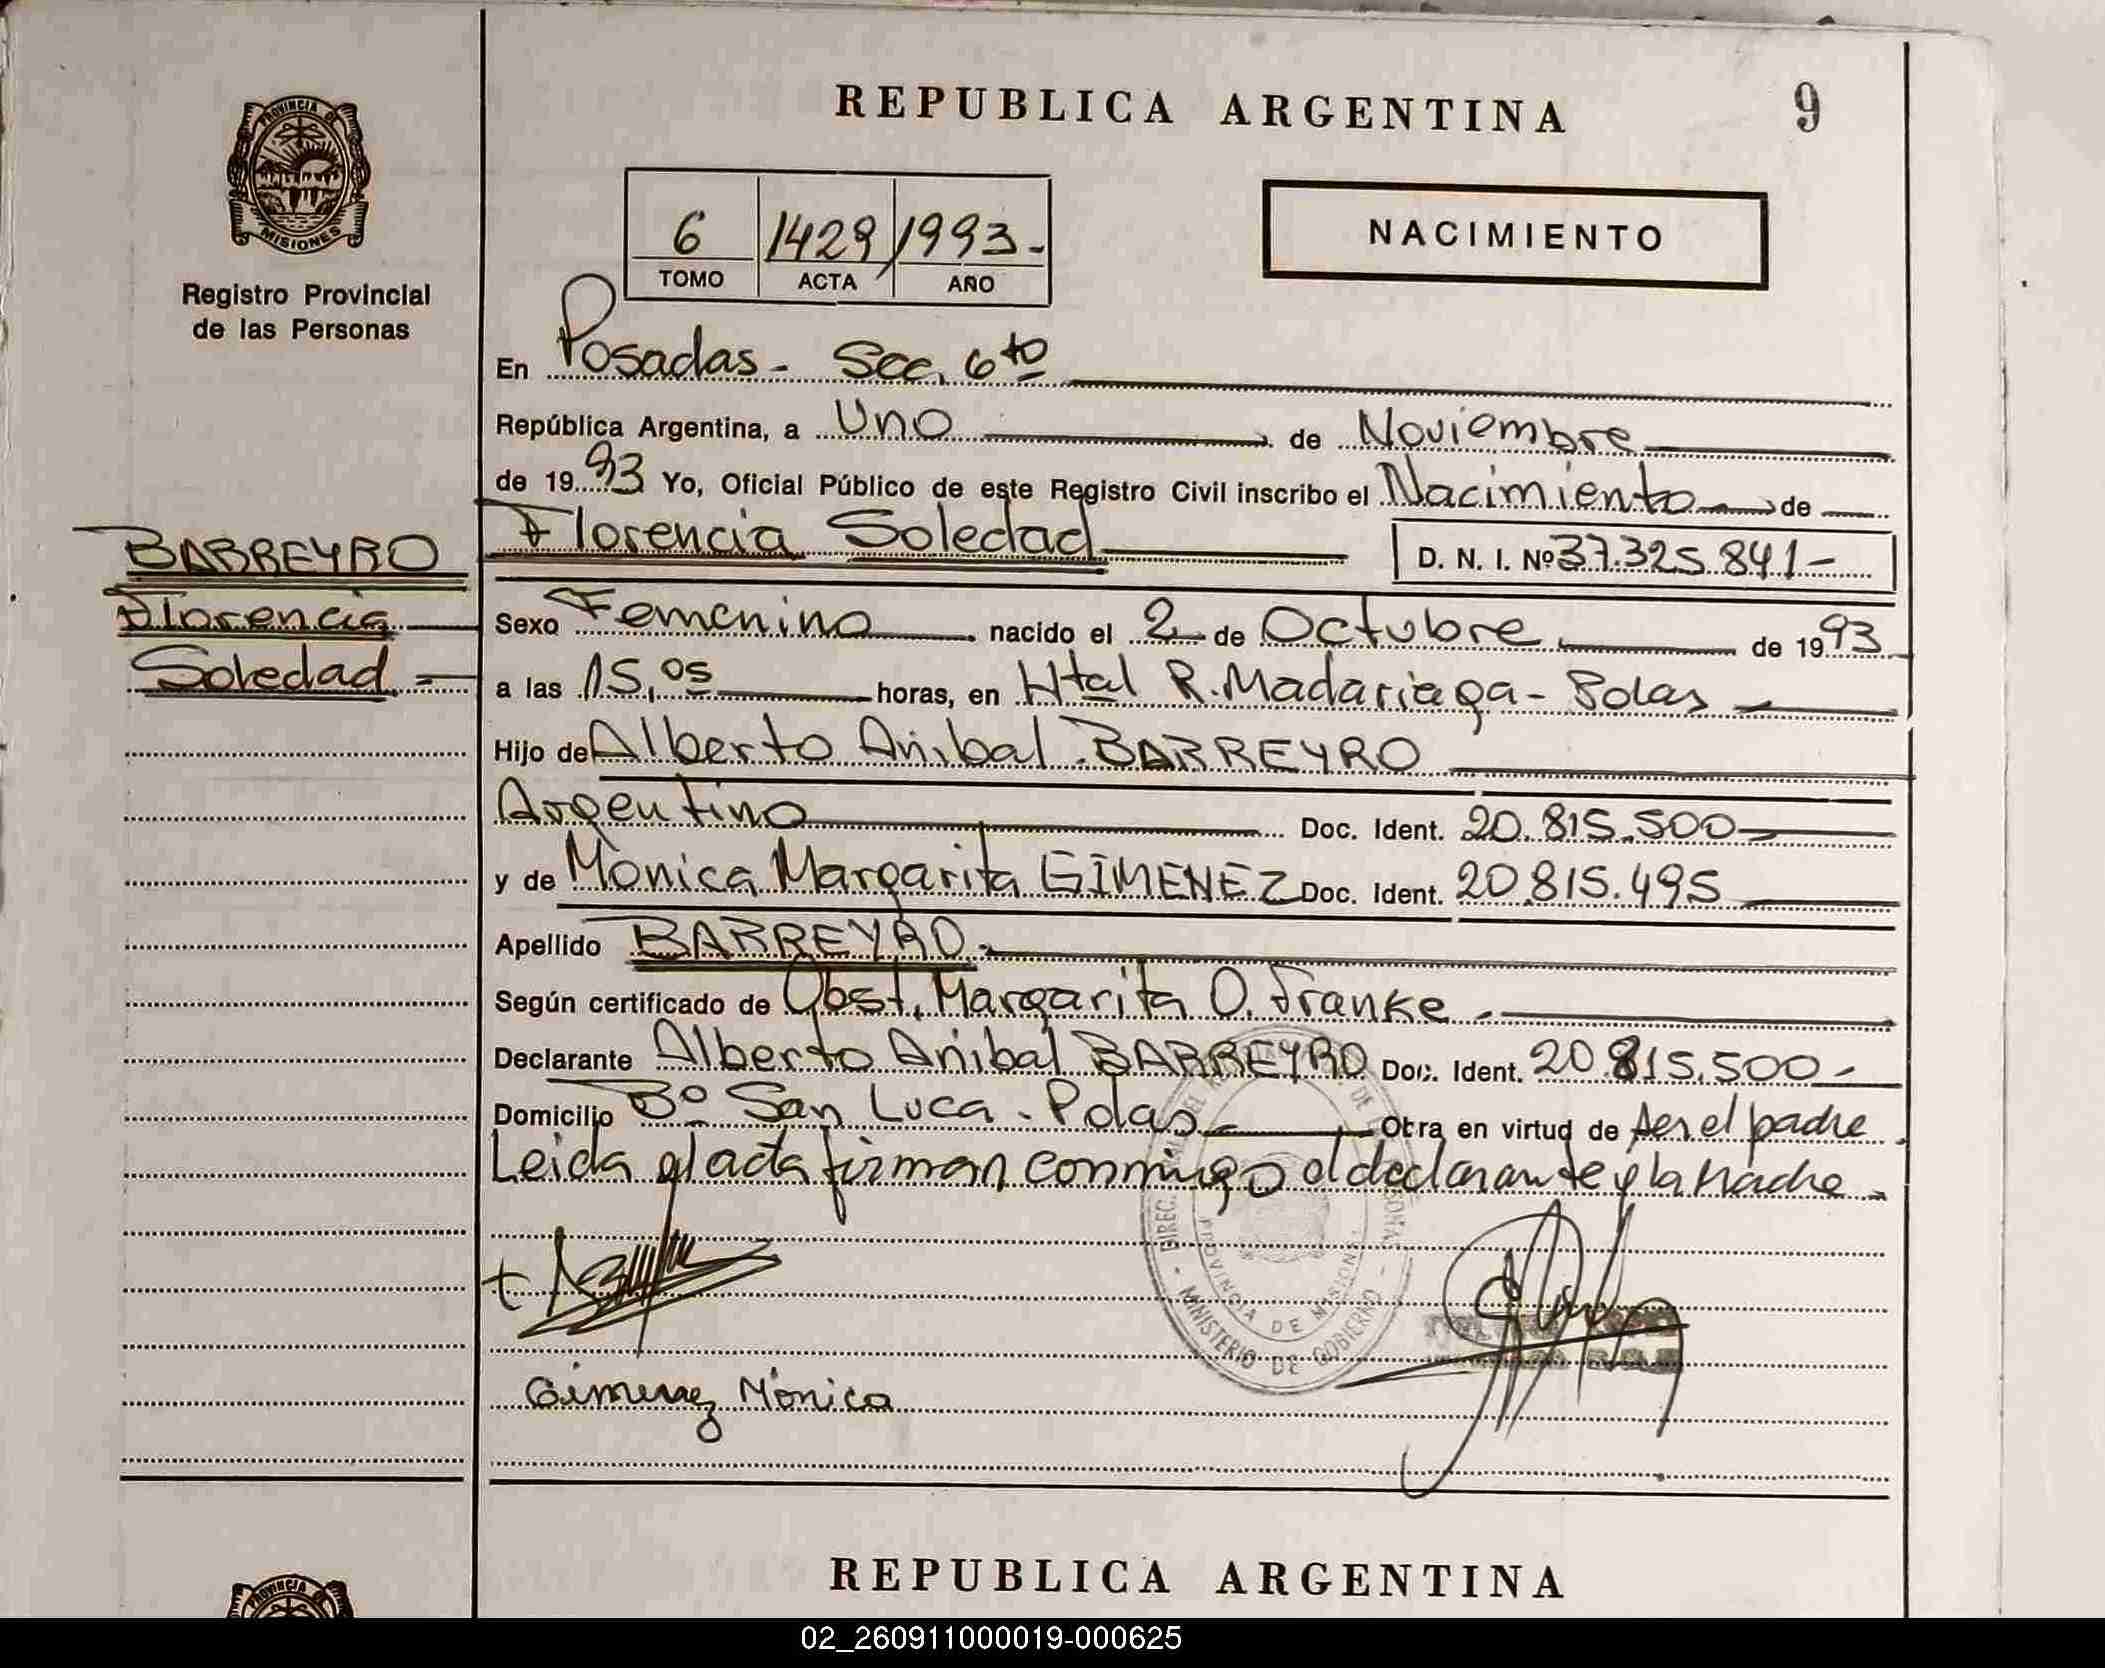 REPUBLICA ARGENTINA
9
PROVINCIA DE
MISIONES
Registro Provincial
de las Personas
6 1429 1993-
TOMO ACTA AÑO
NACIMIENTO
En Posadas- Sec. 6to
República Argentina, a Uno de Noviembre
de 1993 Yo, Oficial Público de este Registro Civil inscribo el Nacimiento de
BARREYRO
Florencia
Soledad.=
Florencia Soledad D. N. I. Nº 37.325.841-
Sexo Femenino nacido el 2 de Octubre de 1993
a las 15,05 horas, en Htal R. Madariaga- Pdas
Hijo de Alberto Anibal BARREYRO
Argentino Doc. Ident. 20.815.500-
y de Mónica Margarita GIMENEZ Doc. Ident. 20.815.495
Apellido BARREYRO-
Según certificado de Obst. Margarita O. Franke-
Declarante Alberto Anibal BARREYRO Doc. Ident. 20.815.500-
Domicilio Bº San Luca- Pdas Otra en virtud de ser el padre.
Leida el acta firman conmigo el declarante y la Madre-
DIREC. DE PROVINCIA DE MISIONES
- MINISTERIO DE GOBIERNO -
Gimenez Mónica
REPUBLICA ARGENTINA
PROVINCIA DE
02_260911000019-000625